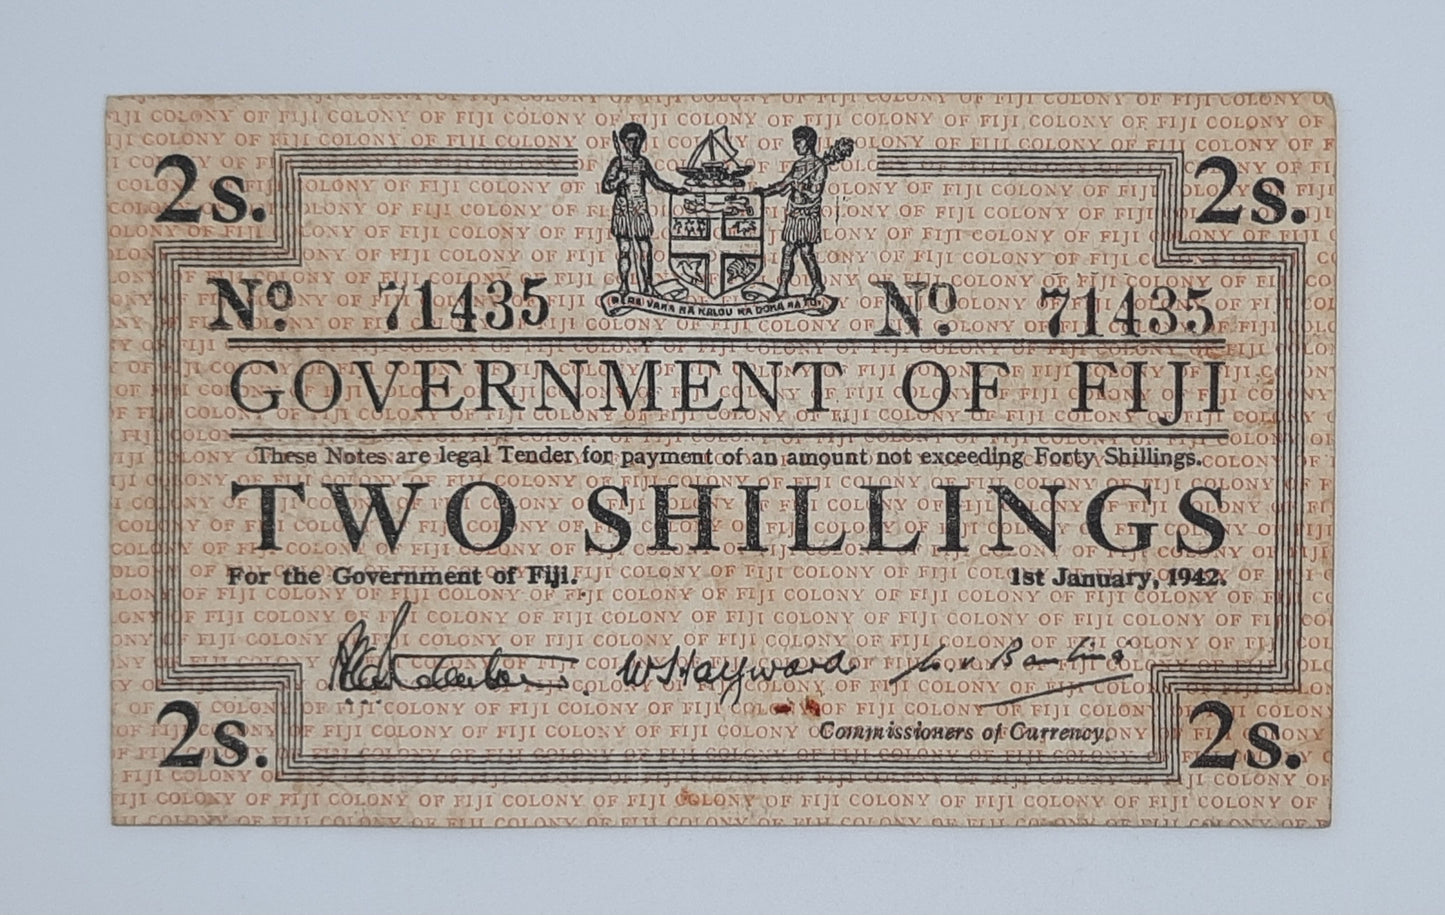 2s. 2s.
RERE VAKA NA KALOU KA DOKA NA TUI
No. 71435 No. 71435
GOVERNMENT OF FIJI
These Notes are legal Tender for payment of an amount not exceeding Forty Shillings.
TWO SHILLINGS
For the Government of Fiji. 1st January, 1942.
W S Hayward
Commissioners of Currency.
2s. 2s.
COLONY OF FIJI COLONY OF FIJI COLONY OF FIJI COLONY OF FIJI